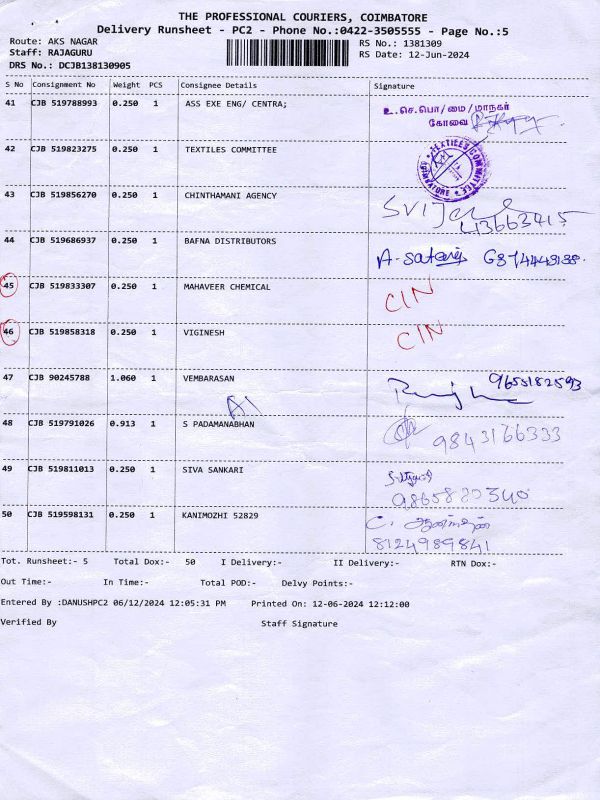 THE PROFESSIONAL COURIERS, COIMBATORE
Delivery Runsheet - PC2 - Phone No.:0422-3505555 - Page No.:5
Route: AKS NAGAR RS No.: 1381309
Staff: RAJAGURU RS Date: 12-Jun-2024
DRS No.: DCJB138130905
S No Consignment No Weight PCS Consignee Details Signature
41 CJB 519788993 0.250 1 ASS EXE ENG/ CENTRA; உ.செ.பொ/மை/மாநகர்
கோவை
42 CJB 519823275 0.250 1 TEXTILES COMMITTEE TEXTILES COMMITTEE COIMBATORE
43 CJB 519856270 0.250 1 CHINTHAMANI AGENCY
44 CJB 519686937 0.250 1 BAFNA DISTRIBUTORS
45 CJB 519833307 0.250 1 MAHAVEER CHEMICAL CIN
46 CJB 519858318 0.250 1 VIGINESH CIN
47 CJB 90245788 1.060 1 VEMBARASAN 9655182593
48 CJB 519791026 0.913 1 S PADAMANABHAN 9843166333
49 CJB 519811013 0.250 1 SIVA SANKARI
9865820340
50 CJB 519598131 0.250 1 KANIMOZHI 52829
8124989841
Tot. Runsheet:- 5 Total Dox:- 50 I Delivery:- II Delivery:- RTN Dox:-
Out Time:- In Time:- Total POD:- Delvy Points:-
Entered By :DANUSHPC2 06/12/2024 12:05:31 PM Printed On: 12-06-2024 12:12:00
Verified By Staff Signature